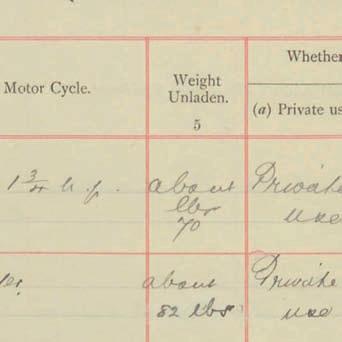 Whether
Motor Cycle.
Weight
Unladen.
5
(a) Private us
1 3/4 h. p.
about
lbs
70
Private
use
about
82 lbs
Private
use